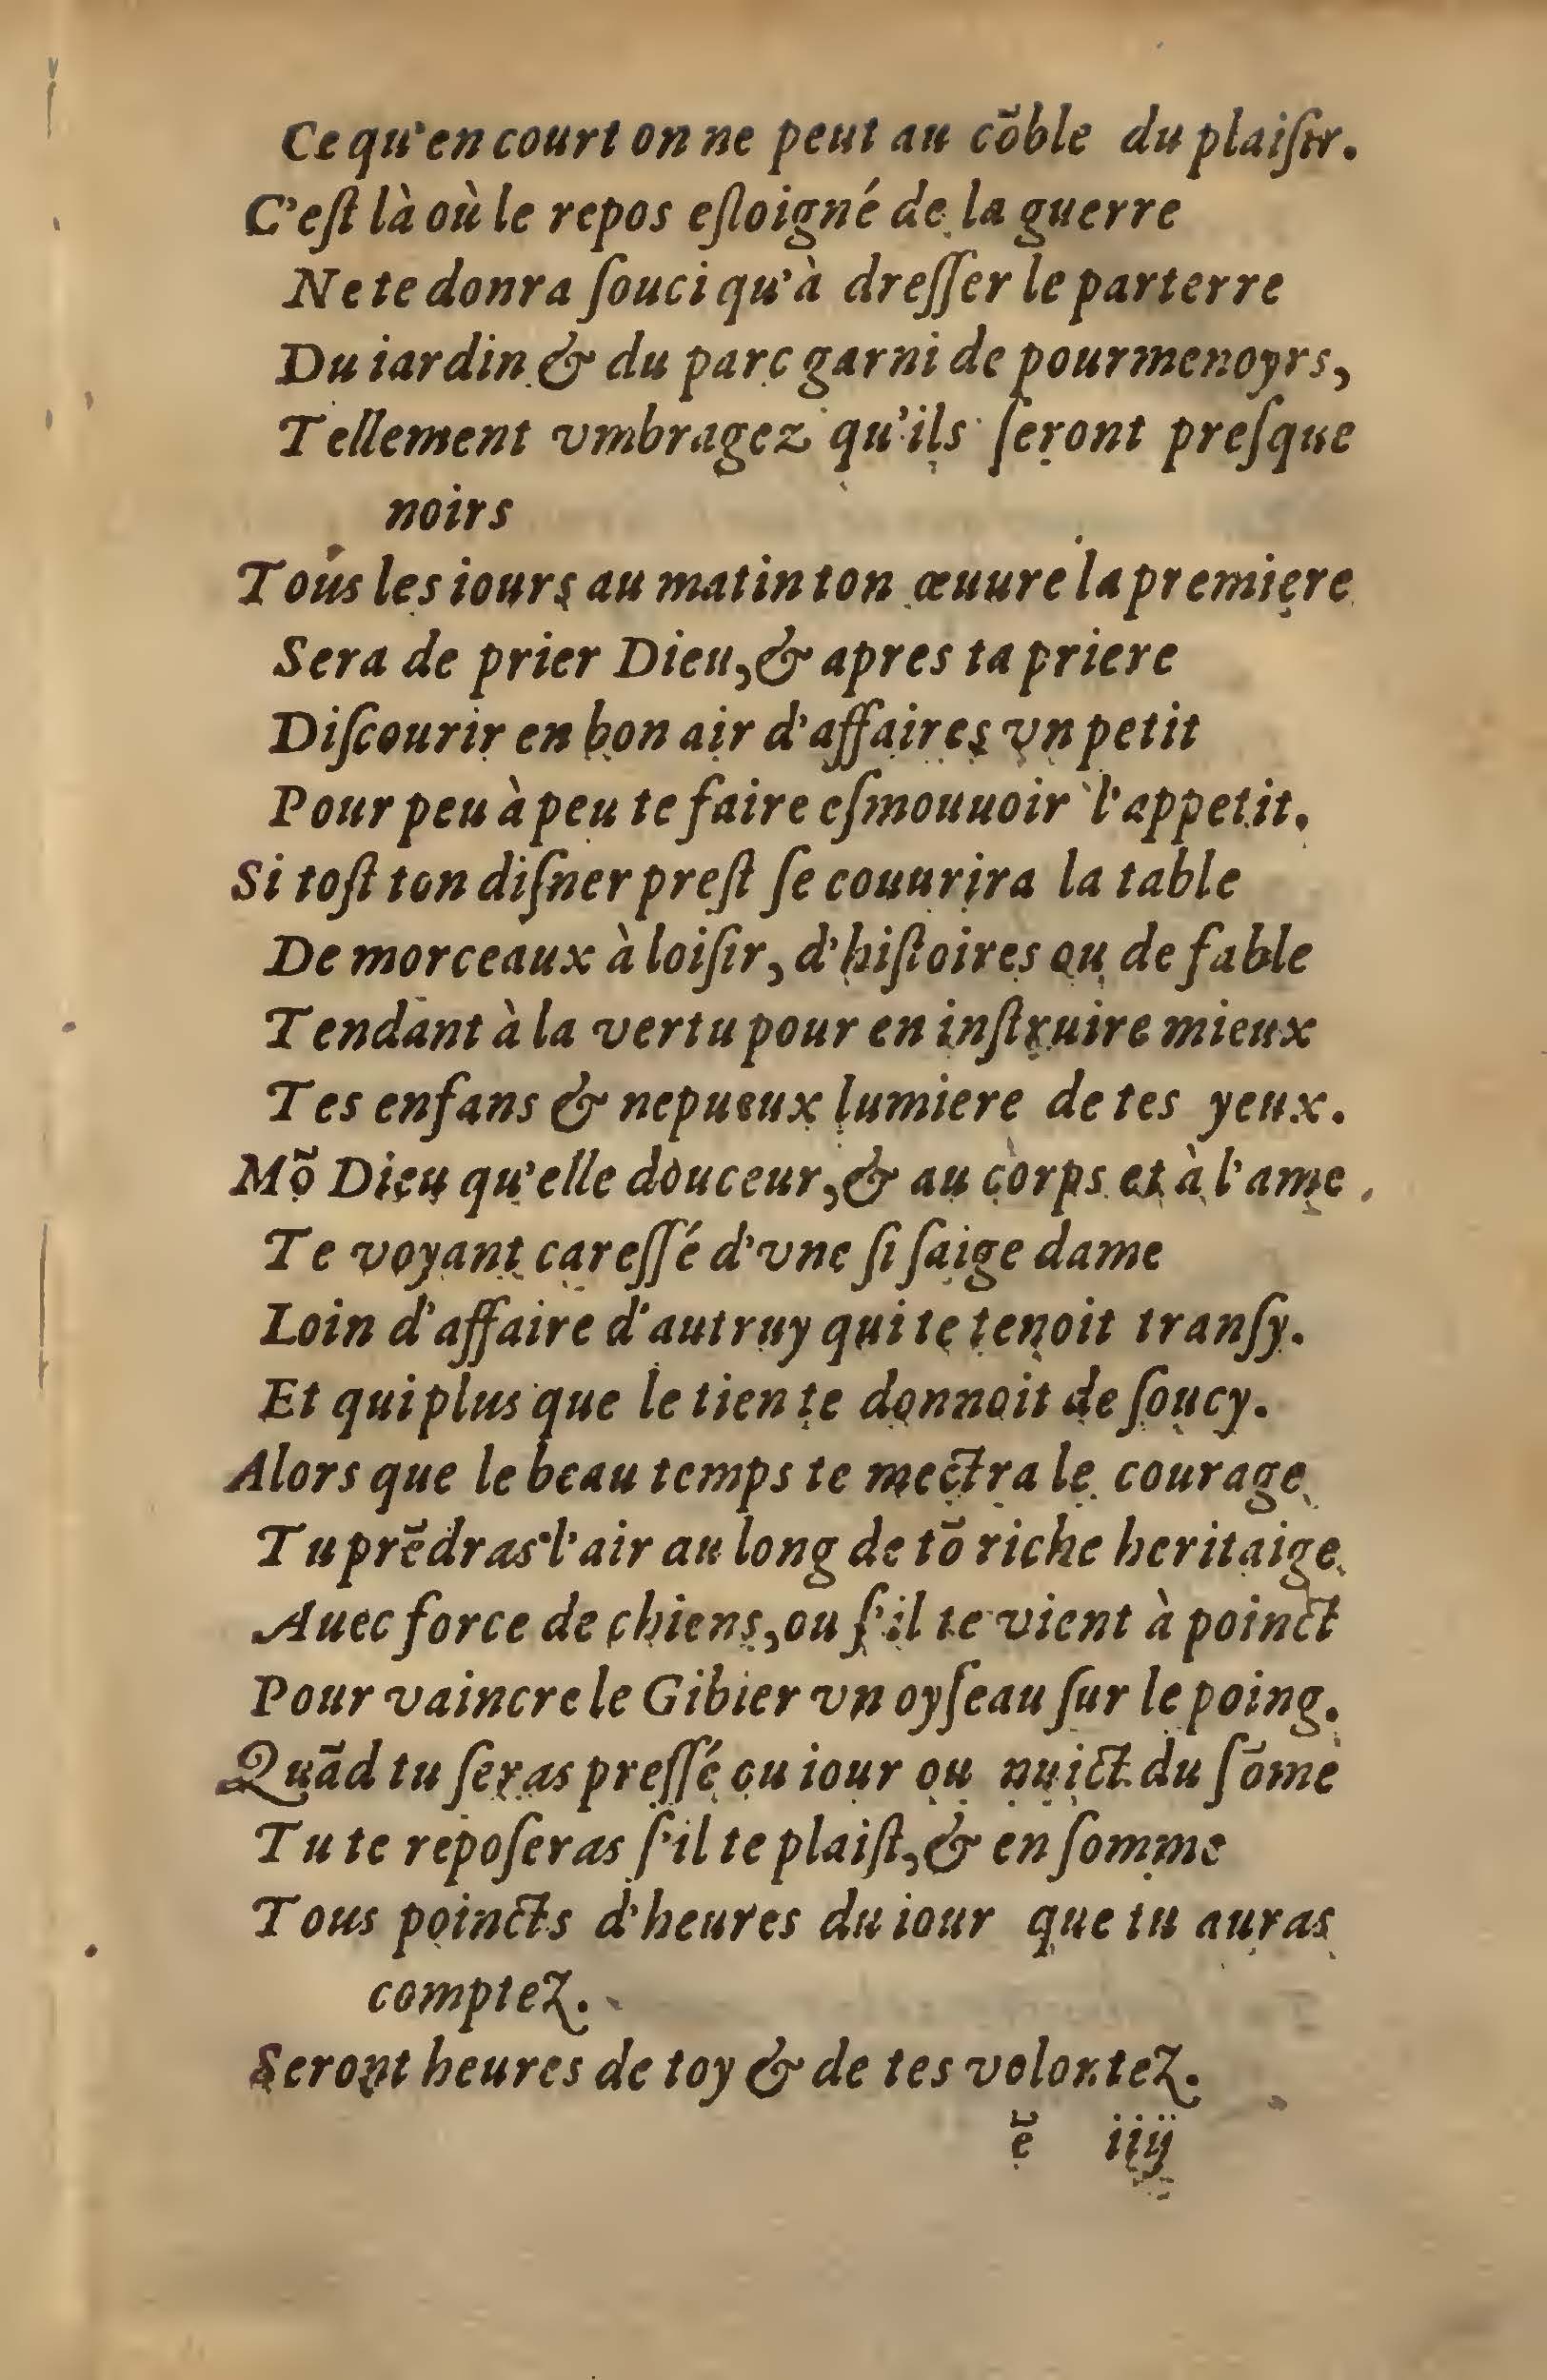 Ce qu'en court on ne peut au cõble du plaiſir.
C'eſt là où le repos eſloigné de la guerre
Ne te donra ſouci qu'à dreſſer le parterre
Du iardin & du parc garni de pourmenoyrs,
Tellement vmbragez qu'ils ſeront preſque
noirs
Tous les iours au matin ton œuure la premiere
Sera de prier Dieu, & apres ta priere
Diſcourir en bon air d'affaires vn petit
Pour peu à peu te faire eſmouuoir l'appetit.
Si toſt ton diſner preſt ſe couurira la table
De morceaux à loiſir, d'hiſtoires ou de fable
Tendant à la vertu pour en inſtruire mieux
Tes enfans & nepueux lumiere de tes yeux.
Mõ Dieu qu'elle douceur, & au corps et à l'ame.
Te voyant careſſé d'vne ſi ſaige dame
Loin d'affaire d'autruy qui te tenoit tranſy.
Et qui plus que le tien te donnoit de ſoucy.
Alors que le beau temps te mectra le courage
Tu prẽdras l'air au long de tõ riche heritaige
Auec force de chiens, ou ſ'il te vient à poinct
Pour vaincre le Gibier vn oyſeau ſur le poing.
Quãd tu ſeras preſſé ou iour ou nuict du ſõme
Tu te repoſeras ſ'il te plaiſt, & en ſomme
Tous poincts d'heures du iour que tu auras
comptez.
Seront heures de toy & de tes volontez.
ẽ iiij